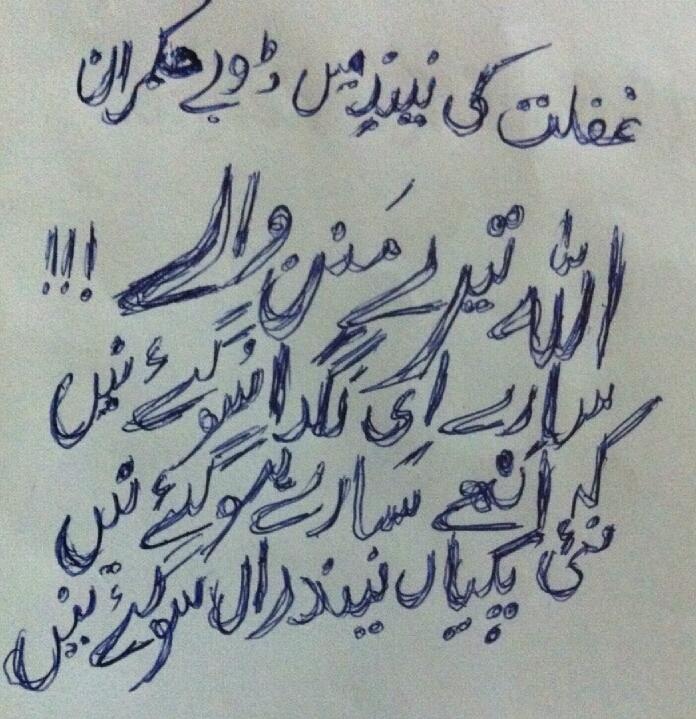 غفلت کی نیند میں ڈوبے حکمران
اللہ تیرے مَنن والے !!!
سارے ای لگدا سُو گئے نیں
کہ اَنھے سارے ہو گئے نیں
نئی پکیاں نیندراں سو گئے نیں